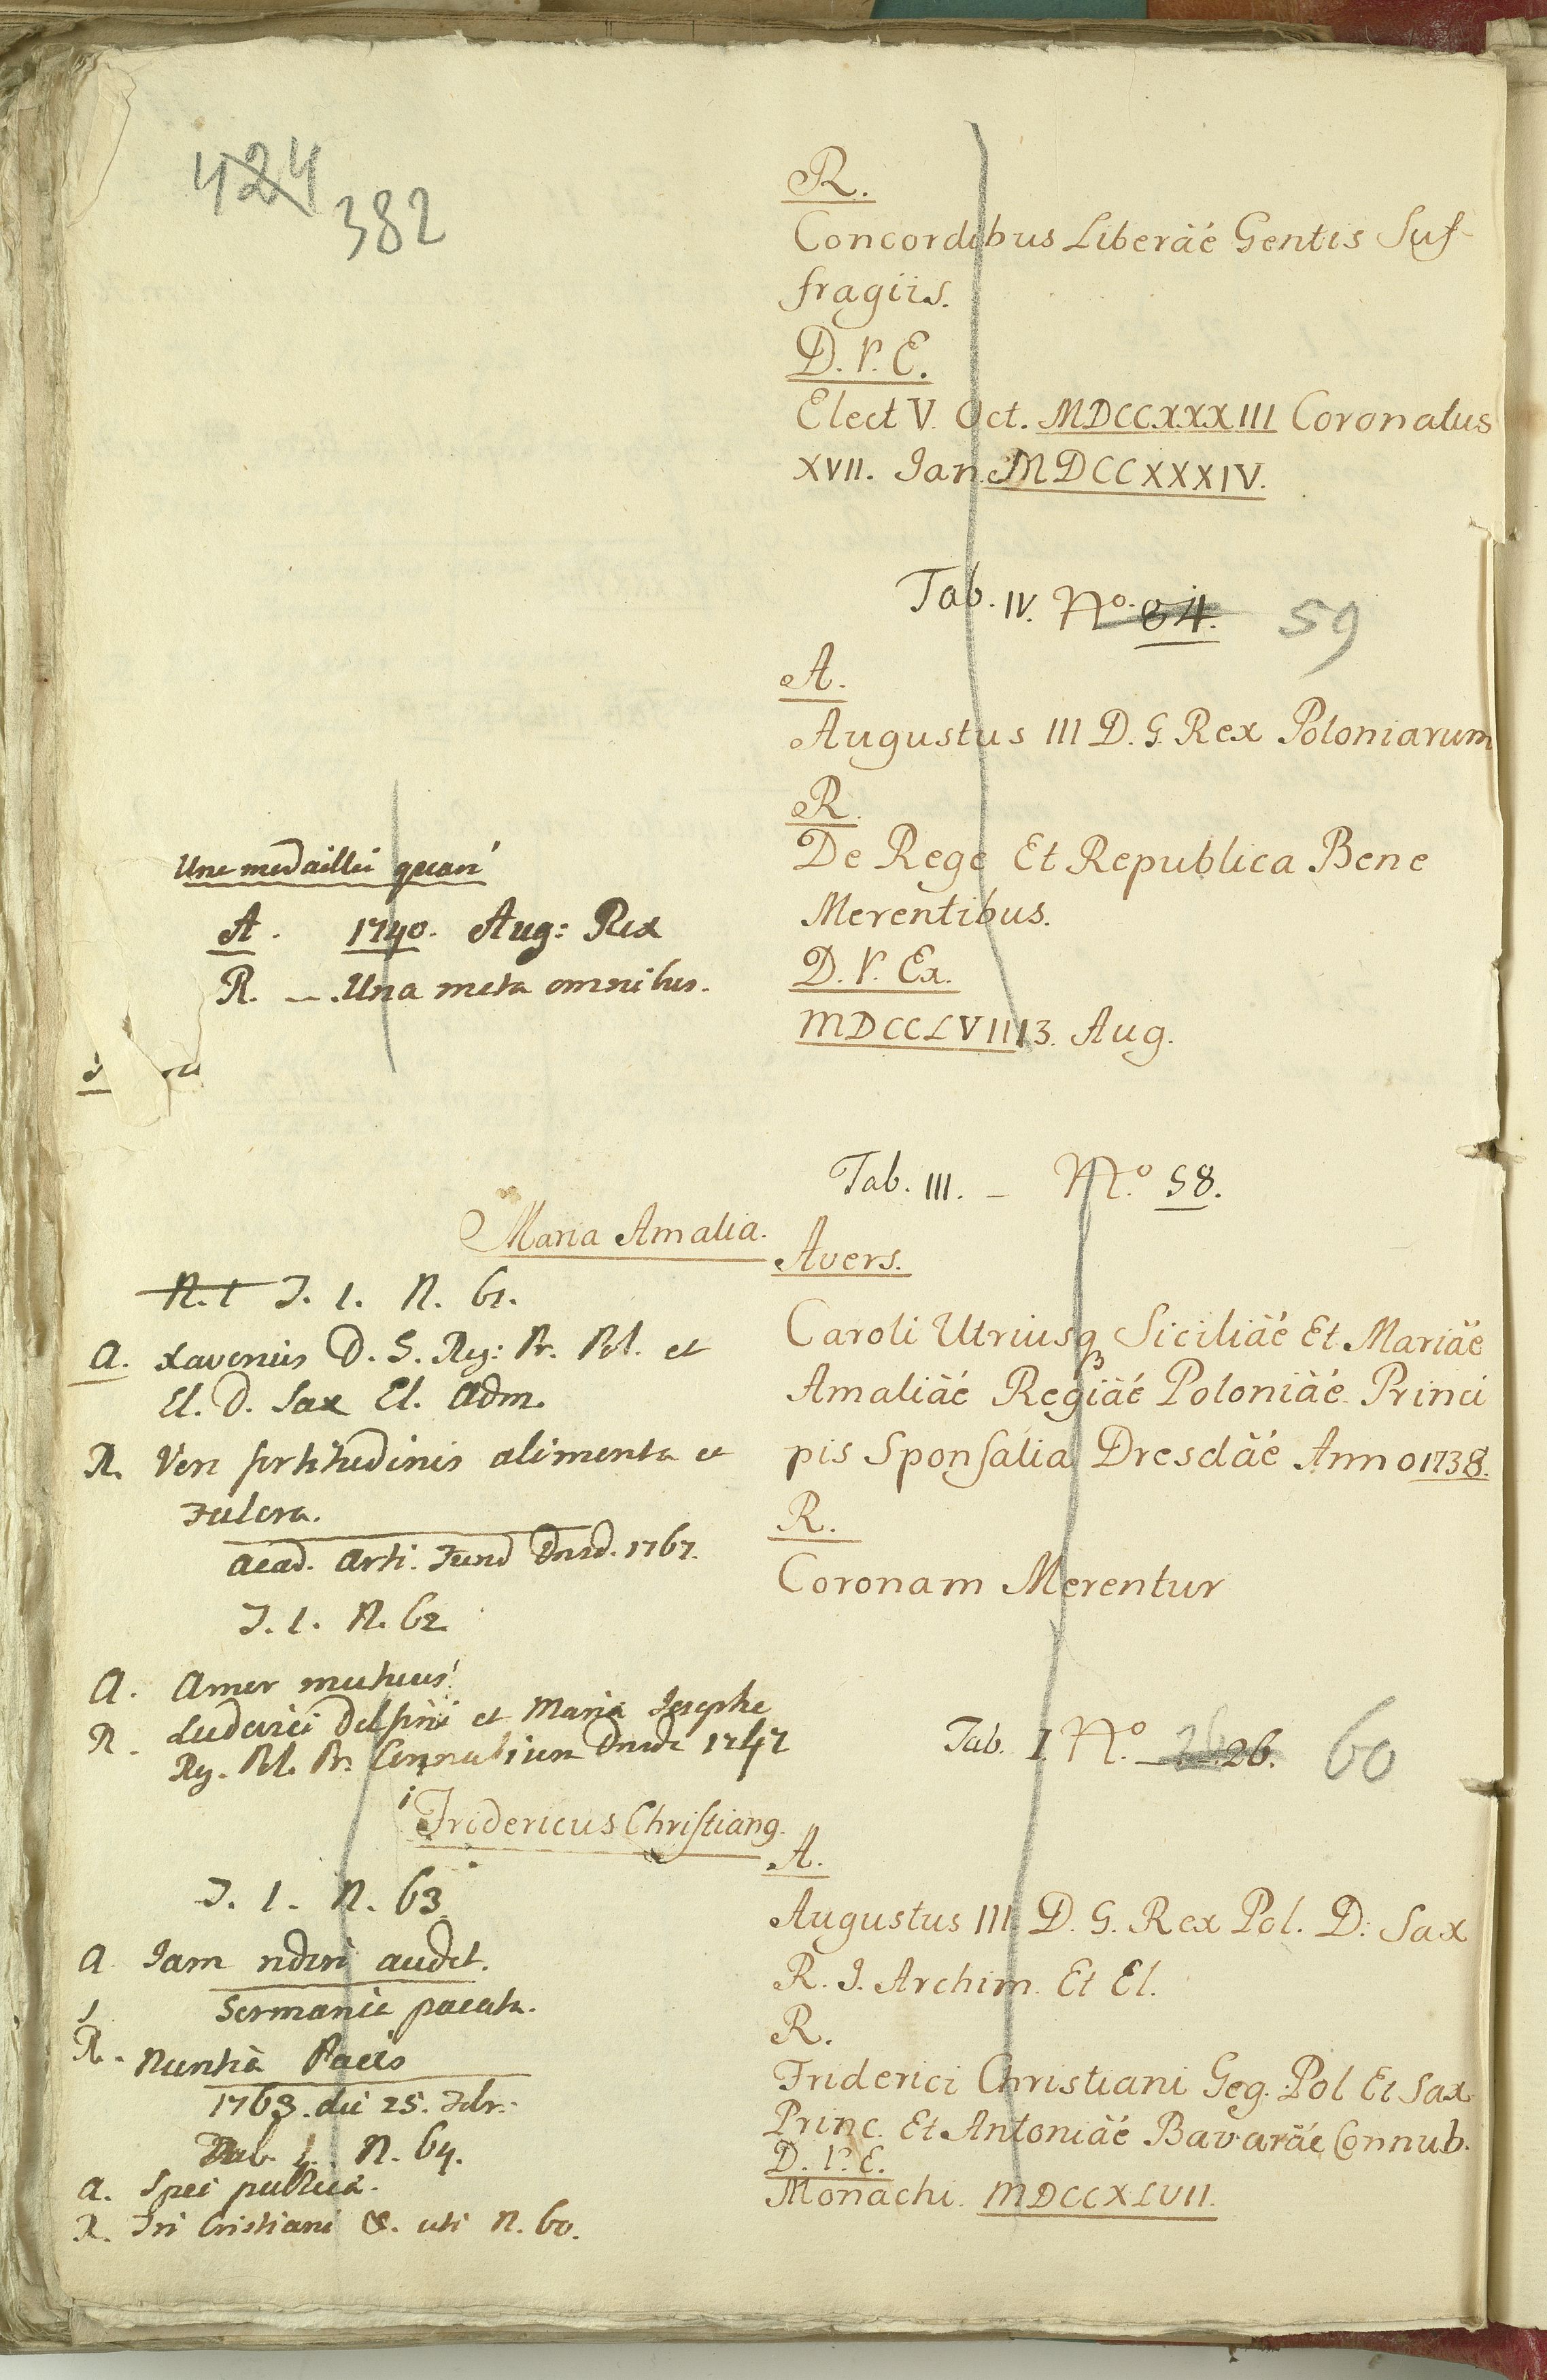 424
382
R.
Concordibus Liberäé Gentis Suf-
fragiis.
D. V. E.
Elect V. Oct. MDCCXXXIII Coronatus
XVII. Ian. MDCCXXXIV.
Tab. IV. No. 64. 59
A.
Augustus III D. G. Rex Poloniarum
R.
De Rege Et Republica Bene
Merentibus.
D. V. Ex.
MDCCLVIII 3. Aug.
Une medaille
A. 1740. Aug: Rex
R. — Una meta omnibus.
Tab. III. — No. 58.
Maria Amalia.
Avers.
Caroli Utriusq Siciliäé Et Mariäé
Amaliäé Regiäé Poloniäé Princi
pis Sponsalia Dresdäé Anno 1738.
R.
Coronam Merentur
N. 1 T. 1. N. 61.
A. Xaverius D. G. Reg: Pr. Pol. et
El. D. Sax El. Adm.
R. Veri fortitudinis alimenta et
Fulcra.
Acad. Arti. Fund Dresd. 1767.
T. 1. N. 62.
A. Amor mutuus
R. Ludovici Delfini et Maria Josephe
Reg. Pol. Pr. Connubium Dresde 1747
Tab. I No. 26. 26. 60
Fridericus Christiang.
A.
Augustus III. D. G. Rex Pol. D: Sax
R. I. Archim. Et El.
R.
Friderici Christiani Geg. Pol Et Sax
Princ. Et Antoniäé Bavaräé Connub.
D. V. E.
Monachi. MDCCXLVII.
T. 1. N. 63
A. Iam rideri audet.
Germanie pacata.
R. Nuntia Pacis
1763. die 25. Febr.
Tab. 1. N. 64.
A. Spei publica.
R. Fri Cristiani &. uti N. 60.